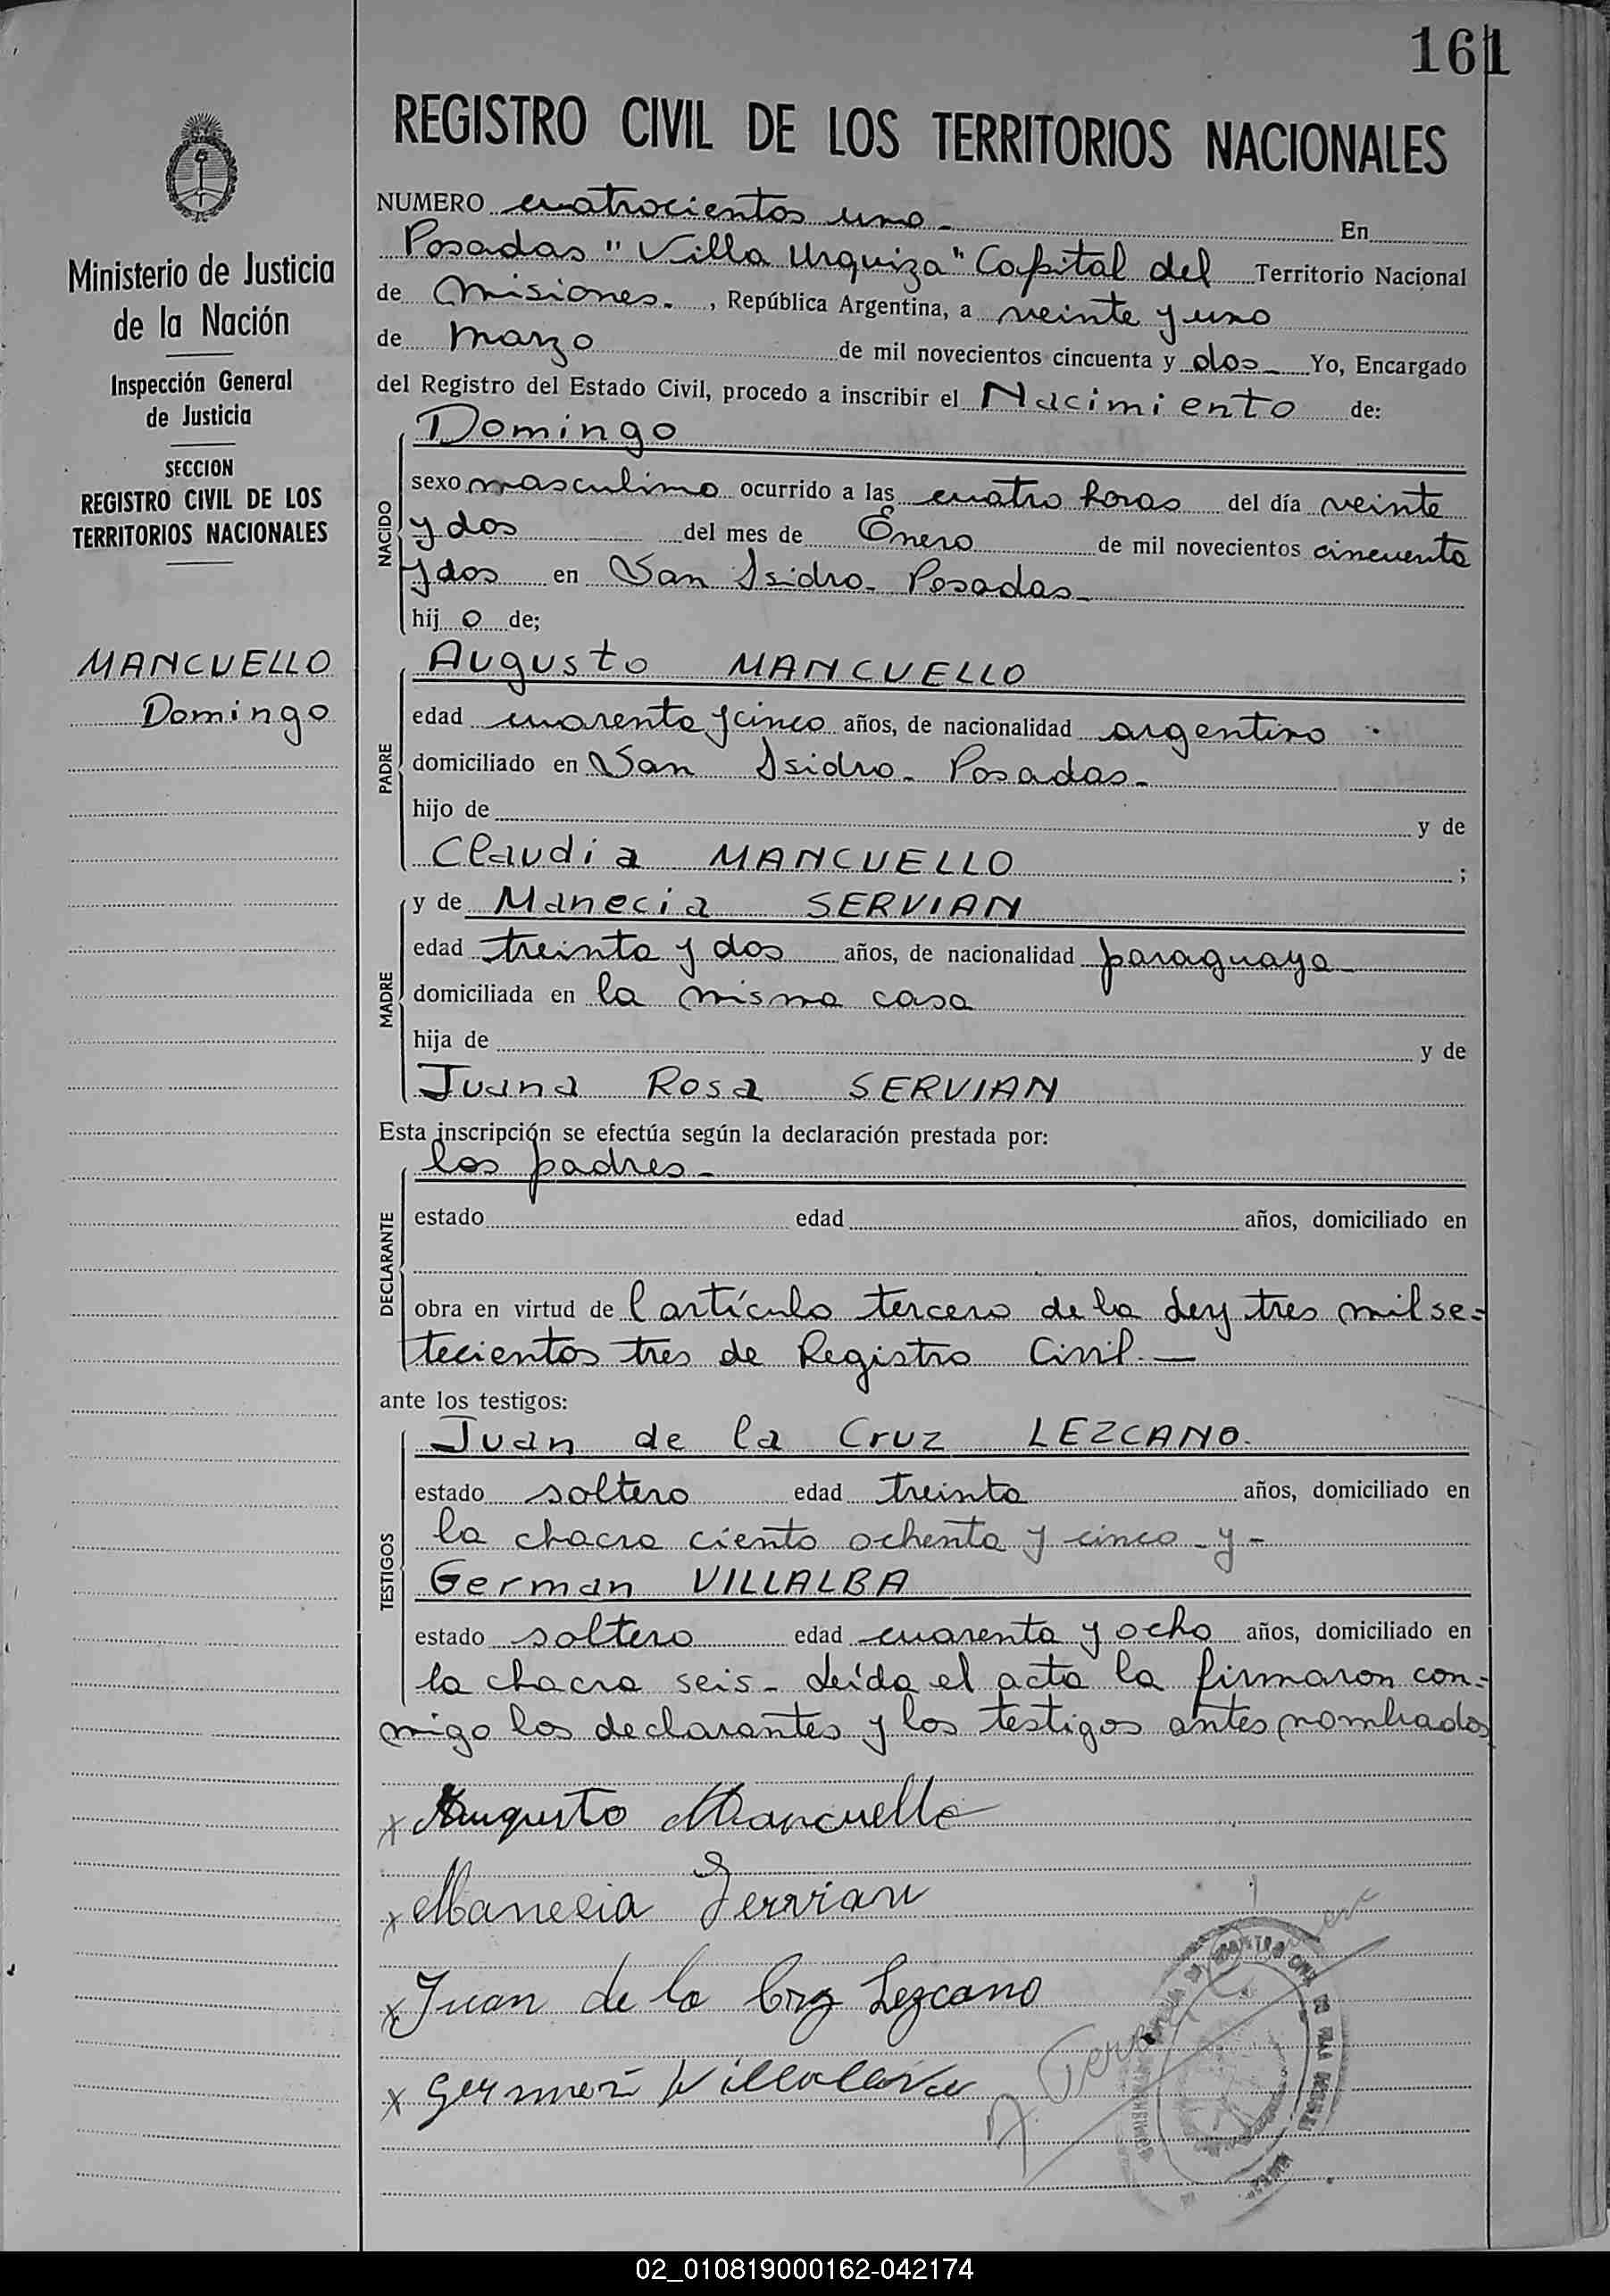 161
REGISTRO CIVIL DE LOS TERRITORIOS NACIONALES
Ministerio de Justicia
de la Nación
Inspección General
de Justicia
SECCION
REGISTRO CIVIL DE LOS
TERRITORIOS NACIONALES
MANCUELLO
Domingo
NUMERO cuatrocientos uno - En
Posadas "Villa Urquiza" Capital del Territorio Nacional
de Misiones. , República Argentina, a veinte y uno
de marzo de mil novecientos cincuenta y dos - Yo, Encargado
del Registro del Estado Civil, procedo a inscribir el Nacimiento de:
NACIDO
Domingo
sexo masculino ocurrido a las cuatro horas del día veinte
y dos del mes de Enero de mil novecientos cincuenta
y dos en San Isidro - Posadas -
hij o de;
PADRE
Augusto MANCUELLO
edad cuarenta y cinco años, de nacionalidad argentino
domiciliado en San Isidro - Posadas -
hijo de y de
Claudia MANCUELLO ;
MADRE
y de Manecia SERVIAN
edad treinta y dos años, de nacionalidad paraguaya
domiciliada en la misma casa
hija de y de
Juana Rosa SERVIAN
Esta inscripción se efectúa según la declaración prestada por:
DECLARANTE
los padres -
estado edad años, domiciliado en
obra en virtud de l artículo tercero de la Ley tres mil se=
tecientos tres de Registro Civil. —
ante los testigos:
TESTIGOS
Juan de la Cruz LEZCANO.
estado soltero edad treinta años, domiciliado en
la chacra ciento ochenta y cinco - y -
German VILLALBA
estado soltero edad cuarenta y ocho años, domiciliado en
la chacra seis - Leída el acta la firmaron con=
migo los declarantes y los testigos antes nombrados
x Augusto Mancuello
x Manecia Servian
x Juan de la Cruz Lezcano
x German
02_010819000162-042174